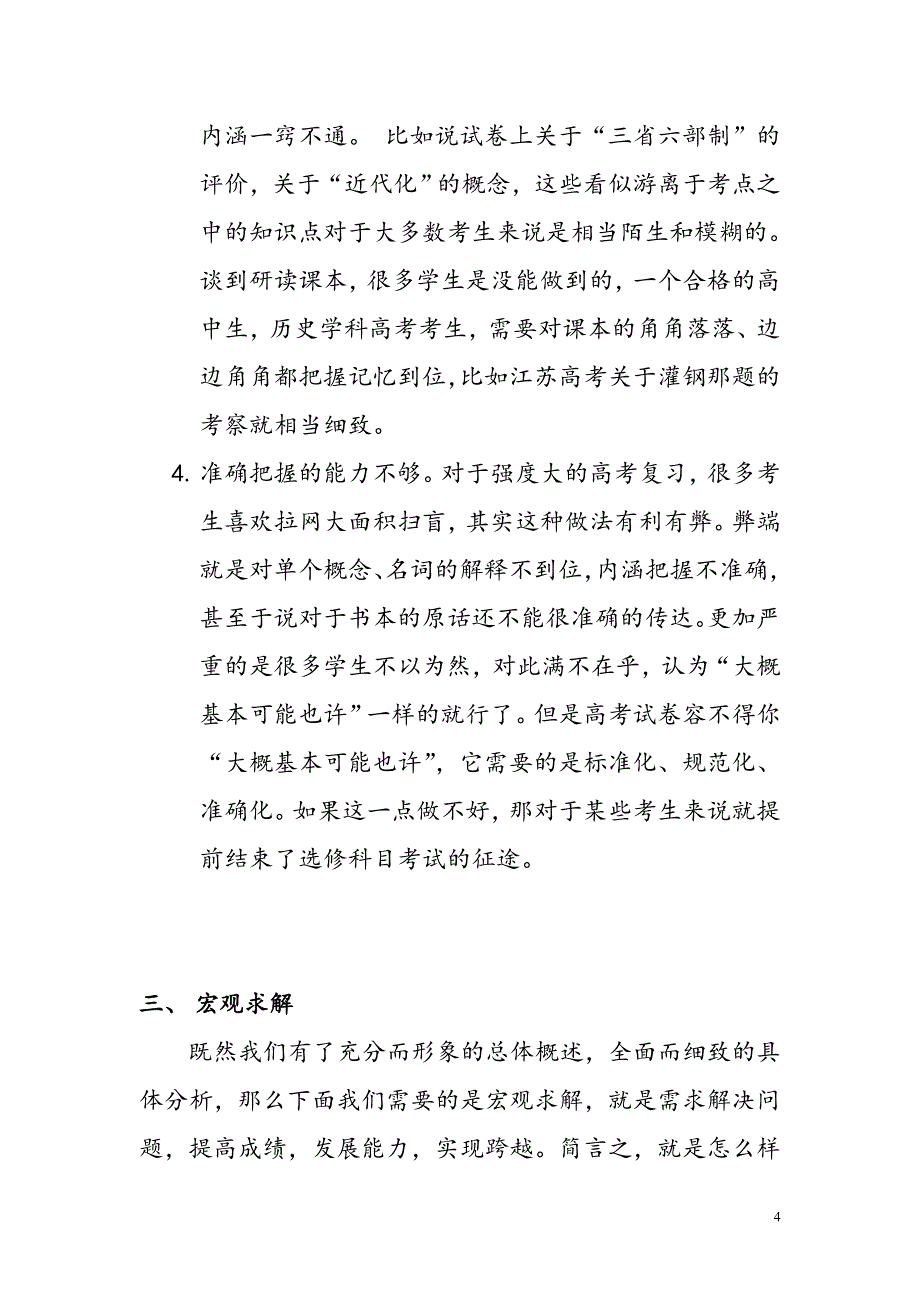 内涵一窍不通。 比如说试卷上关于“三省六部制”的
评价，关于“近代化”的概念，这些看似游离于考点之
中的知识点对于大多数考生来说是相当陌生和模糊的。
谈到研读课本，很多学生是没能做到的，一个合格的高
中生，历史学科高考考生，需要对课本的角角落落、边
边角角都把握记忆到位，比如江苏高考关于灌钢那题的
考察就相当细致。
4. 准确把握的能力不够。对于强度大的高考复习，很多考
生喜欢拉网大面积扫盲，其实这种做法有利有弊。弊端
就是对单个概念、名词的解释不到位，内涵把握不准确，
甚至于说对于书本的原话还不能很准确的传达。更加严
重的是很多学生不以为然，对此满不在乎，认为“大概
基本可能也许”一样的就行了。但是高考试卷容不得你
“大概基本可能也许”，它需要的是标准化、规范化、
准确化。如果这一点做不好，那对于某些考生来说就提
前结束了选修科目考试的征途。
三、 宏观求解
既然我们有了充分而形象的总体概述，全面而细致的具
体分析，那么下面我们需要的是宏观求解，就是需求解决问
题，提高成绩，发展能力，实现跨越。简言之，就是怎么样
4